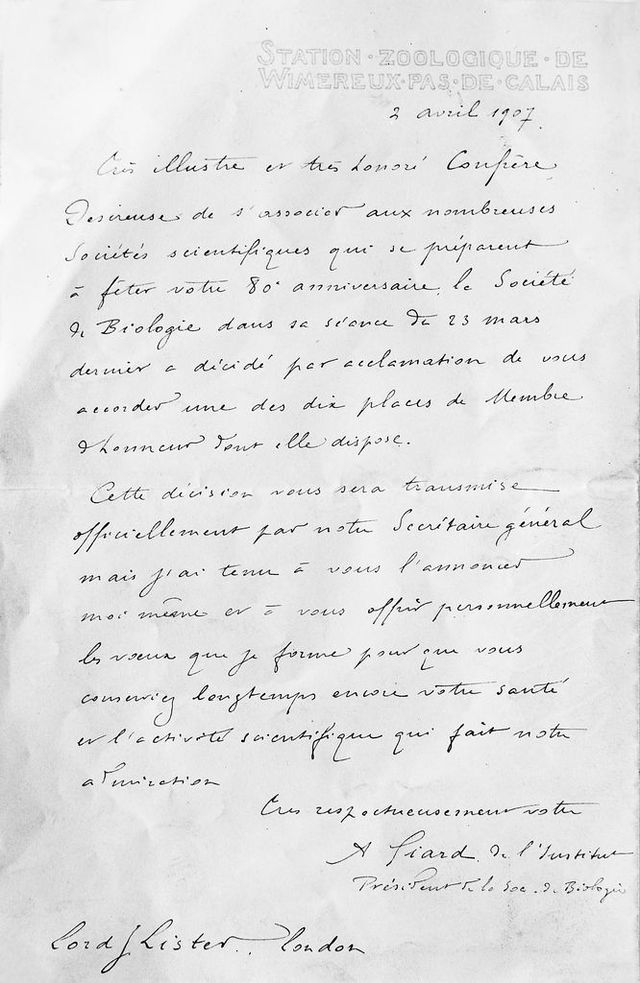 STATION·ZOOLOGIQUE·DE
WIMEREUX·PAS·DE·CALAIS
2 avril 1907.
Très illustre et très honoré Confrère
Desireuse de s'associer aux nombreuses
Sociétés scientifiques qui se préparent
à fêter votre 80e anniversaire, la Société
de Biologie dans sa séance du 23 mars
dernier a décidé par acclamation de vous
accorder une des dix places de Membre
d'honneur dont elle dispose.
Cette décision vous sera transmise
officiellement par notre Secrétaire général
mais j'ai tenu à vous l'annoncer
moi même et à vous offrir personnellement
les vœux que je forme pour que vous
conserviez longtemps encore votre santé
et l'activité scientifique qui fait notre
admiration
Très respectueusement votre
A Giard de l'Institut
Président de la Soc. de Biologie
Lord J Lister. London